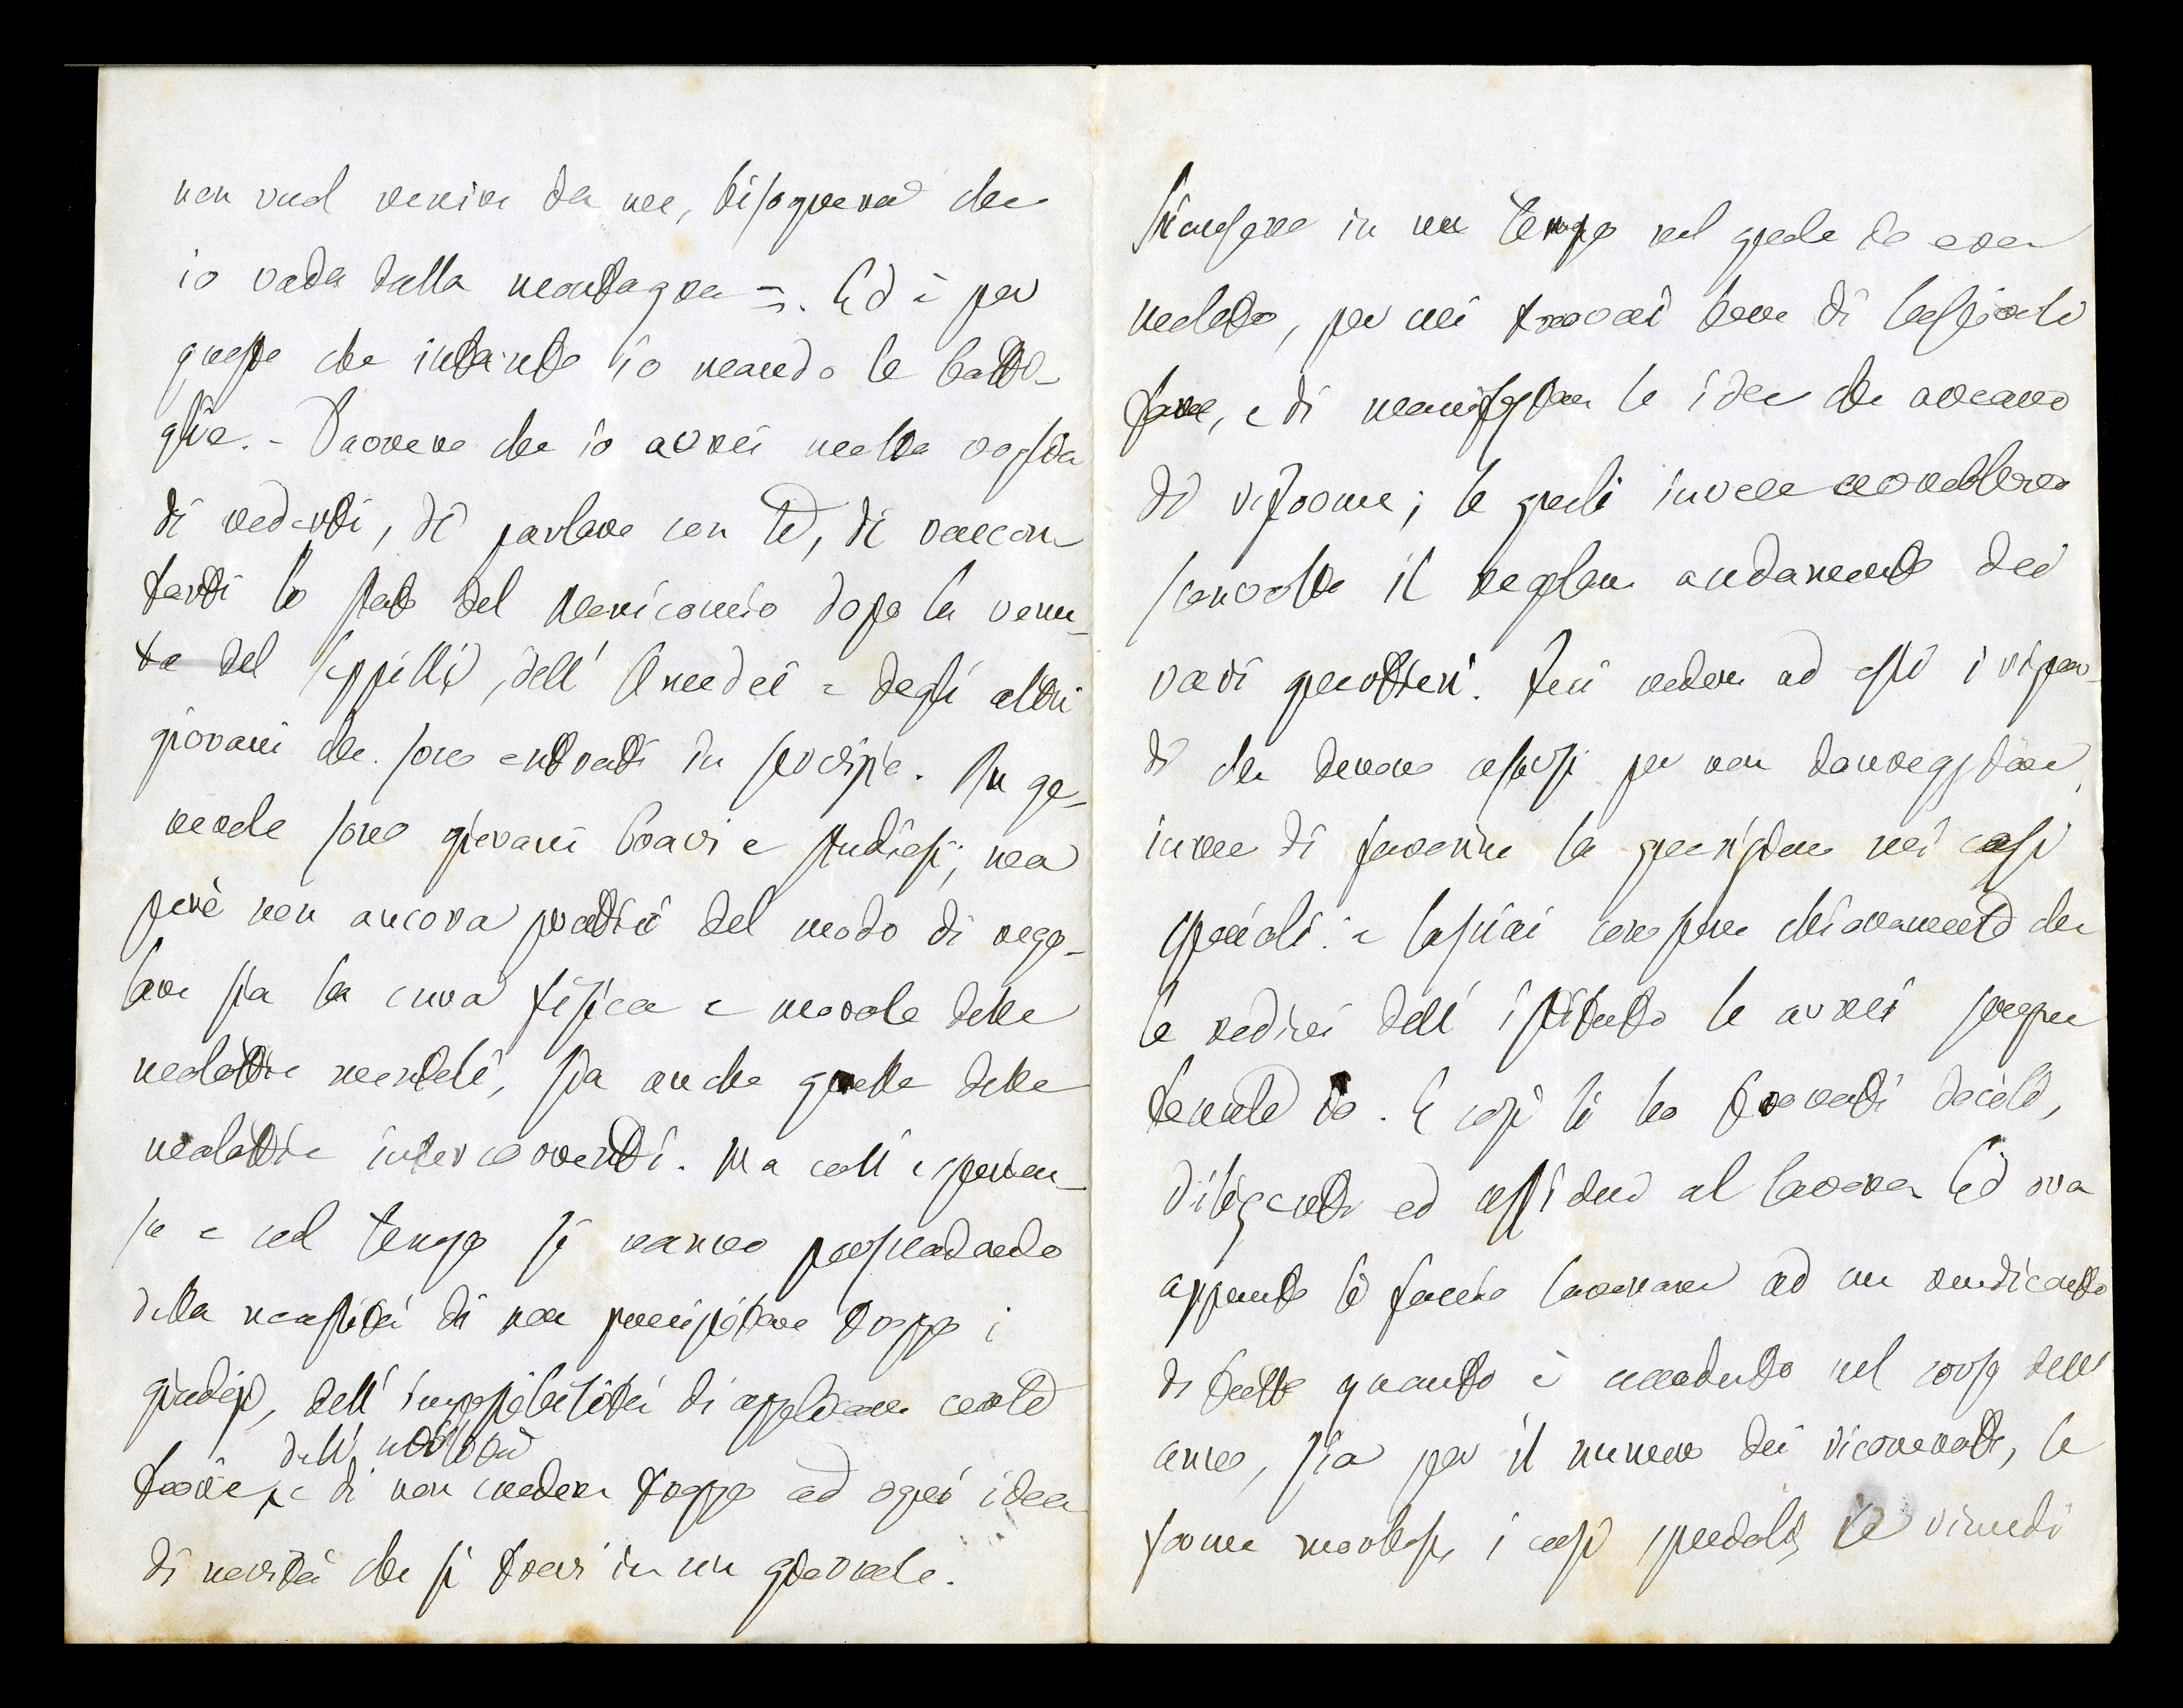 non vuol venire da me, bisognerà che
io vada dalla montagna =. Ed è per
questo che intanto io mando le batti-
glie. - Davvero che io avrei molta voglia
di vederti, di parlare con te, di raccon
tarti lo stato del Manicomio dopo la venu-
ta del Seppilli, dell' Amadei e degli altri
giovani che sono entrati in servizio. In ge-
nerale sono giovani bravi e studiosi; ma
però non ancora pratici del modo di rego-
lare sia la cura fisica e morale delle
malattie mentali, sia anche quelle delle
malattie intercorrenti. Ma coll' esperien-
za e col tempo si vanno persuadendo
della necessità di non precipitare troppo i
giudizi, dell' impossibilità di applicare certe
dell' utilità
teorie, e di non credere troppo ad ogni idea
di novità che si trovi in un giornale.
Siccome in un tempo nel quale io ero
malato, per cui trovai bene di lasciarli
fare, e di manifestare le idee che avevano
di riforme; le quali invece avrebbero
sconvolto il regolare andamento dei
vari quartieri. Feci vedere ad essi i riguar-
di che devono aversi per non danneggiare,
invece di favorire la guarigione nei casi
speciali: e lasciai comprendere chiaramente che
le redini dell' istituto le avrei sempre
tenute io. E così li ho trovati docili,
diligenti ed assidui al lavoro. Ed ora
appunto li faccio lavorare ad un rendiconto
di tutto quanto è accaduto nel corso dell'
anno, sia per il numero dei ricoverati, le
forme morbose, i casi speciali, i rimedi